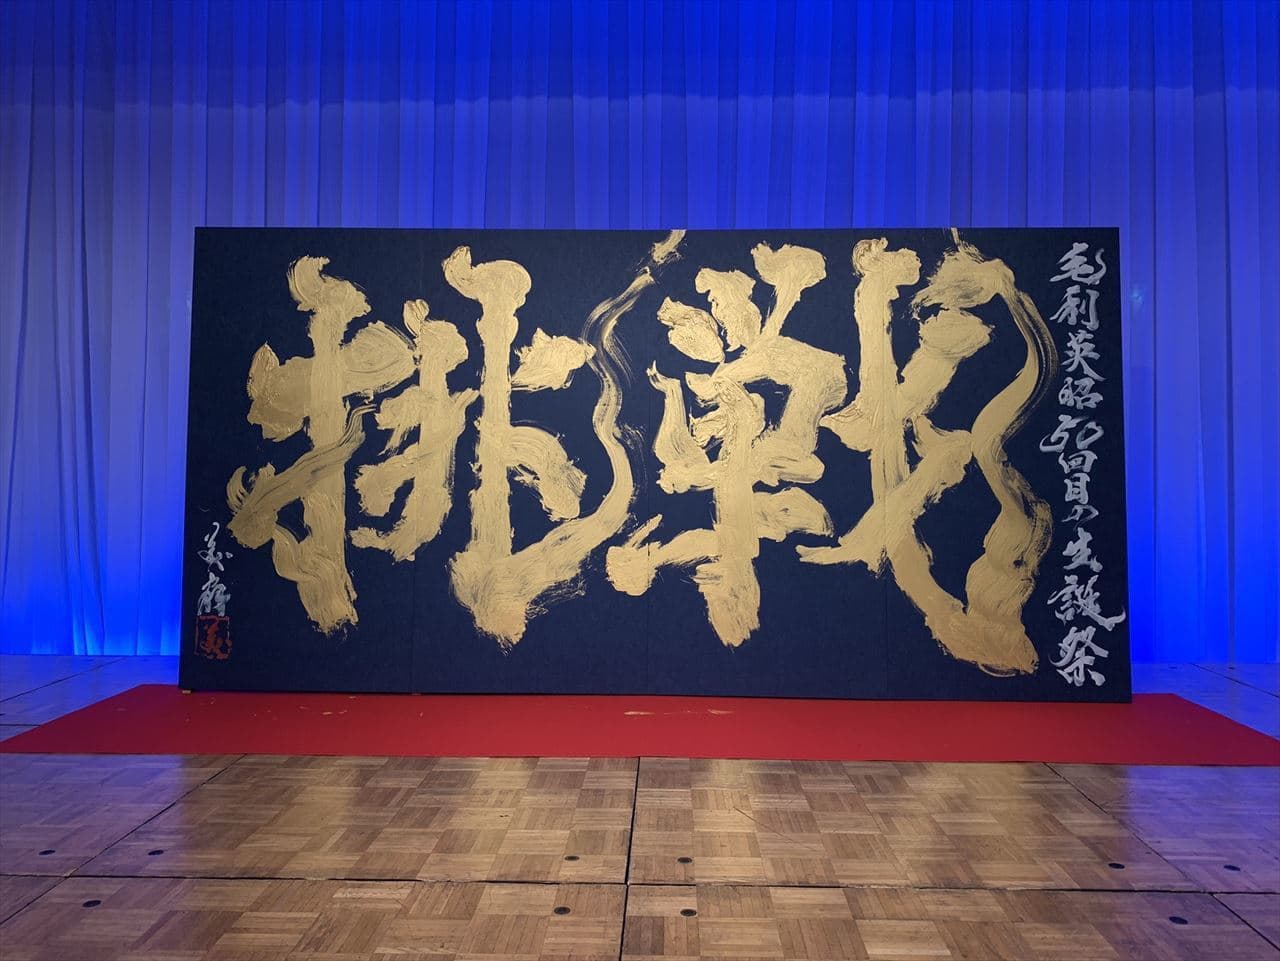 挑戦
毛利英昭50回目の生誕祭